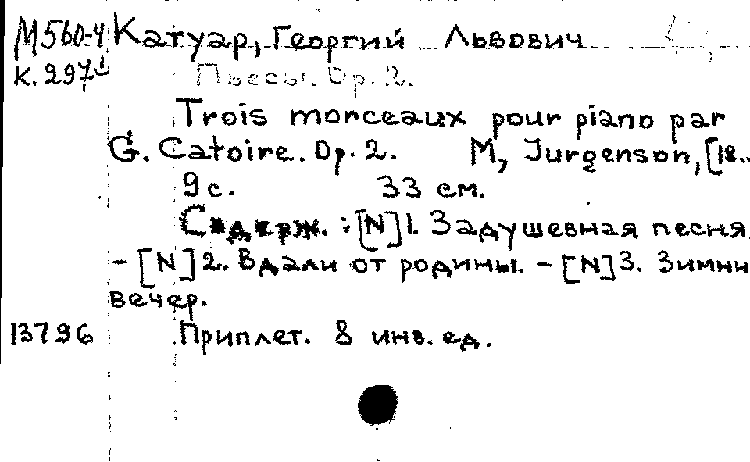 М560-4 Катуар, Георгий Львович
К.297 Пьесы. Op. 2.
Trois morceaux pour piano par
G. Catoire. Op. 2. М, Jurgenson, [18..
9 с. 33 см.
Содерж. : [N] 1. Задушевная песня
- [N] 2. Вдали от родины. - [N] 3. Зимни
вечер.
13796 Приплет. 8 инв. ед.